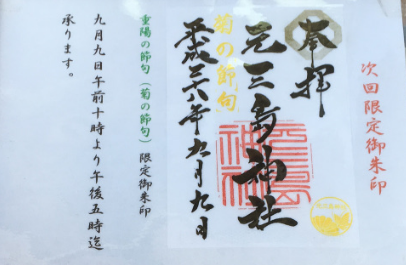 次回限定御朱印
奉拝
元三島神社
菊の節句
平成二八年九月九日
重陽の節句（菊の節句）限定御朱印
九月九日午前十時より午後五時迄
承ります。